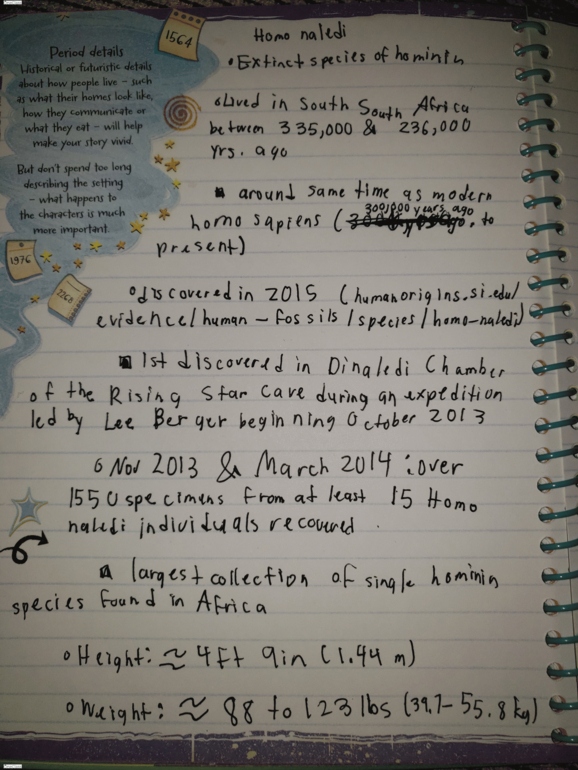 1564
Period details
Historical or futuristic details
about how people live – such
as what their homes look like,
how they communicate or
what they eat – will help
make your story vivid.
But don't spend too long
describing the setting
– what happens to
the characters is much
more important.
1976
2268
Homo naledi
• Extinct species of hominin
o Lived in South South Africa
between 335,000 & 236,000
yrs. ago
▪ around same time as modern
300,000 years ago
homo sapiens ( to
present)
o discovered in 2015 (humanorigins.si.edu/
evidence/human-fossils/species/homo-naledi)
▪ 1st discovered in Dinaledi Chamber
of the Rising Star Cave during an expedition
led by Lee Berger beginning October 2013
o Nov 2013 & March 2014: over
1550 specimens from at least 15 Homo
naledi individuals recovered.
▪ largest collection of single hominin
species found in Africa
o Height: ≈ 4ft 9in (1.44 m)
o Weight: ≈ 88 to 123 lbs (39.7-55.8 kg)